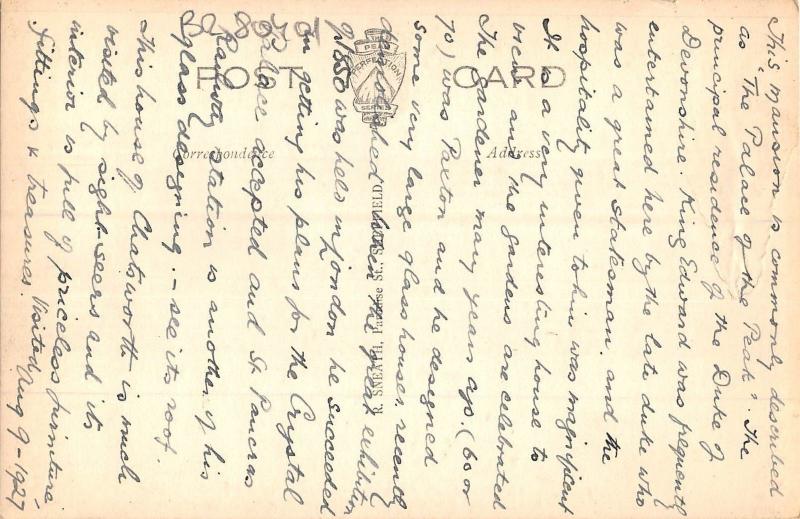 This mansion is commonly described
as "The Palace of the Peak". The
principal residence of the Duke of
Devonshire. King Edward was frequently
entertained here by the late duke who
was a great statesman and the
hospitality given to him was magnificent
It is a very interesting house to
view and the gardens are celebrated
The gardener many years ago. (60 or
70) was Paxton and he designed
some very large glass houses recently
demolished when the great exhibition
of 1850 was held in London he succeeded
in getting his plans for the Crystal
Palace accepted and St Pancras
Railway station is another of his
glass designing. - see its roof.
This house of Chatsworth is much
visited by sight-seers and its
interior is full of priceless furniture,
fittings & treasures. Visited Aug 9-1927
POST CARD
THE
PEAK
PERFECTION
SERIES
Correspondence
Address
R. SNEATH, PARADISE ST., SHEFFIELD